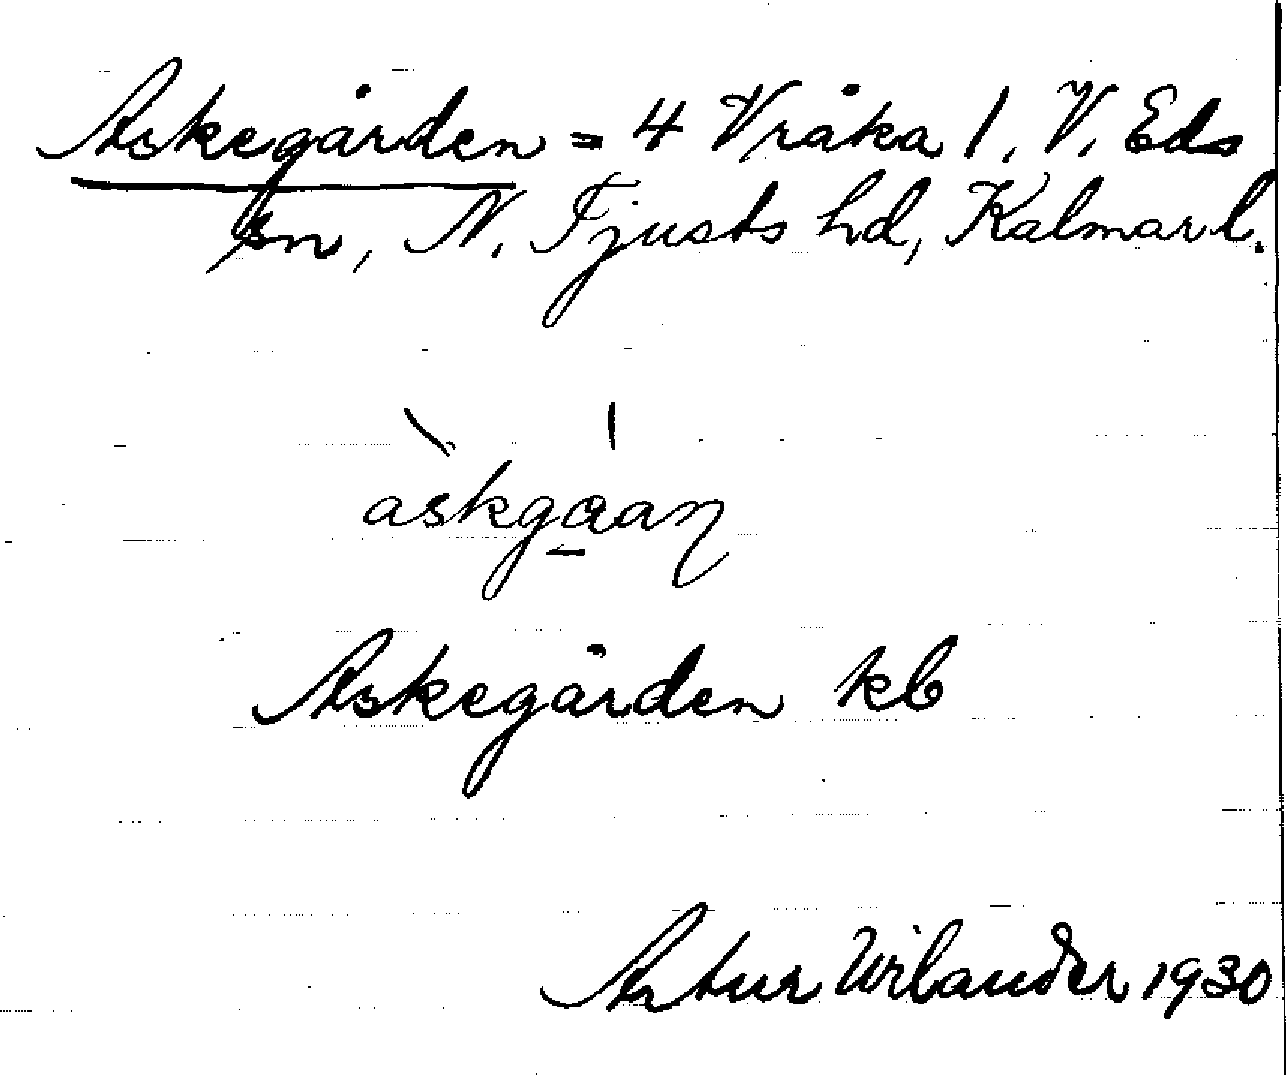 Askegården = 4 Vråka 1, V. Eds
sn, N. Tjusts hd, Kalmar l.
askgaaɳ
Askegården kb
Artur Wilander 1930